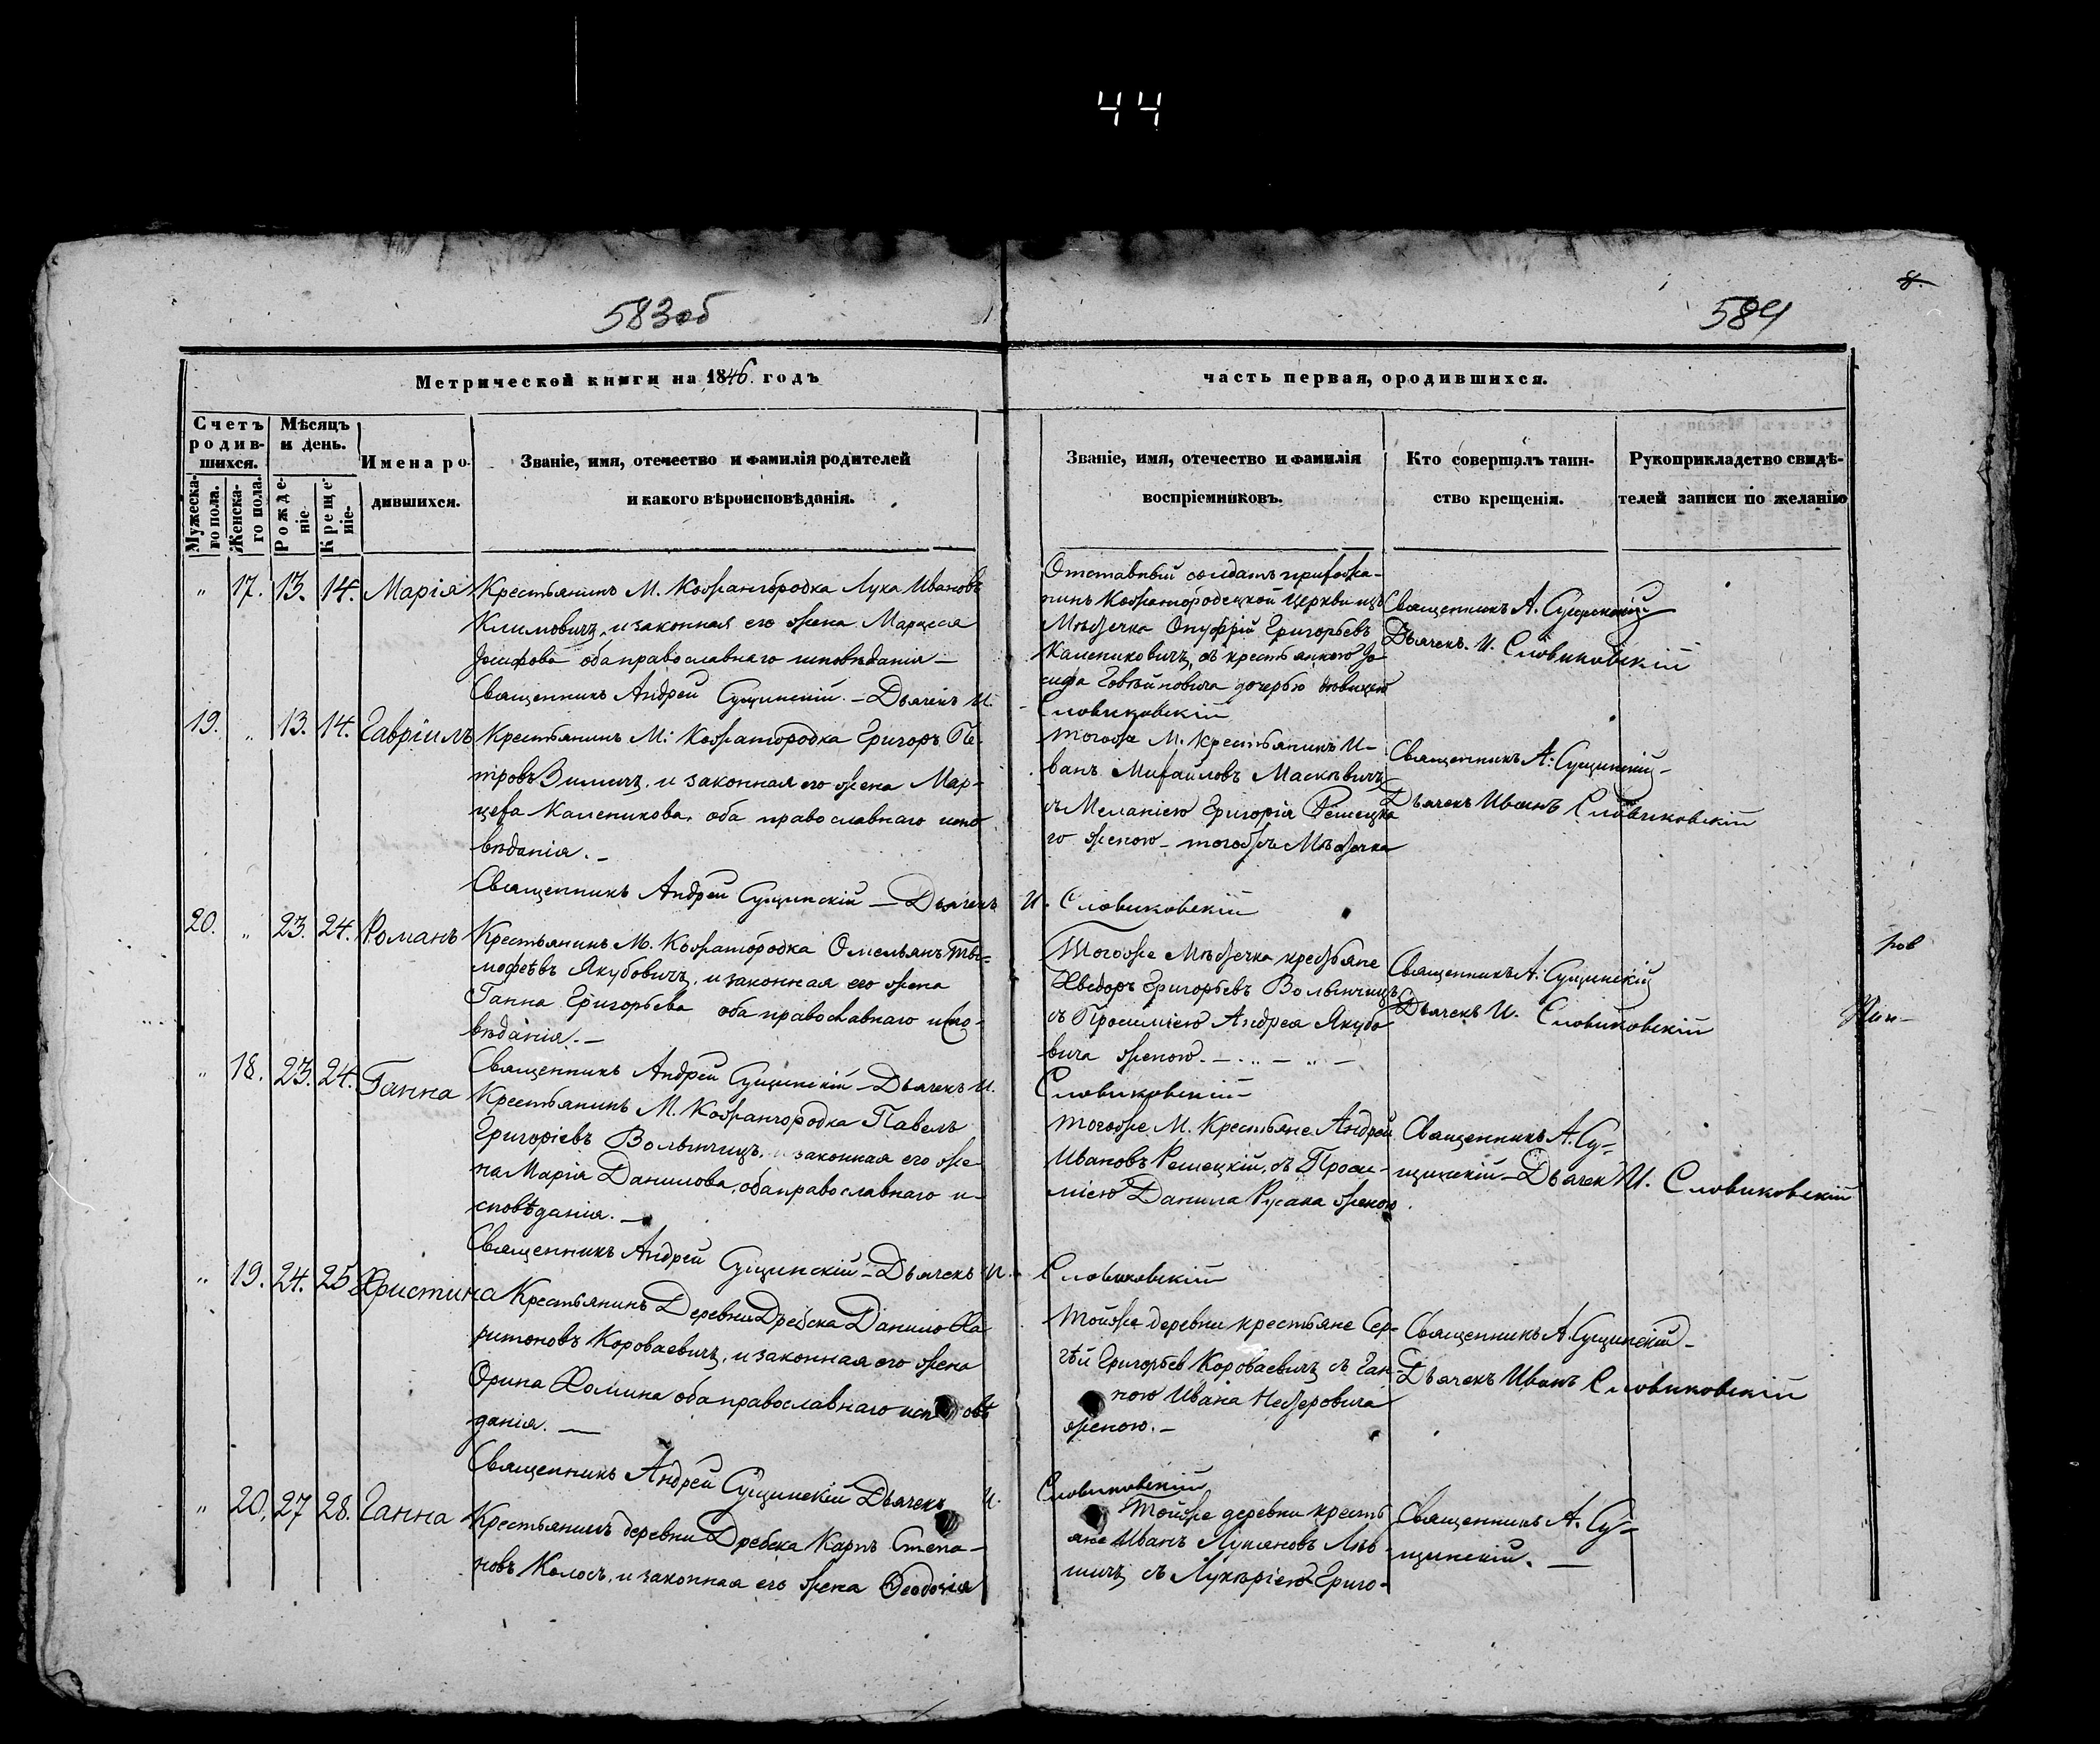 44
8.
583об
584
Метрической книги на 1846. годъ
часть первая, ородившихся.
Счетъ родив-
шихся.
Мѣсяцъ
и день.
Мужеска-
го пола.
Женска-
го пола.
Рожде-
ніе-
Креще-
ніе-
Имена ро-
дившихся.
Званіе, имя, отечество и фамилія родителей
и какого вѣроисповѣданія.
Званіе, имя, отечество и фамилія
воспріемниковъ.
Кто совершалъ таин-
ство крещенія.
Рукоприкладство свидѣ-
телей записи по желанію
„ 17. 13. 14. Марія
Крестьянинъ М. Кожангородка Лука Ивановъ
Климовичъ, и законная его жена
оба православнаго исповѣданія —
Священникъ Андрей Сущинскій. — Дьячекъ И.
Отставный солдатъ прихожа-
нинъ Кожангородецкой Церкви изъ
Мѣстечка Онуфрій Григорьевъ
Калениковичъ, съ крестьянкою Іо-
сифа дочерью девицею
Словиковскій
Священникъ А. Сущинскій
Дьячекъ. И. Словиковскій
19. „ 13. 14. Гавріилъ
Крестьянинъ М: Кожангородка Григоръ Пе-
тровъ и законная его жена Мар-
цеха Каленикова, оба православнаго испо
вѣданія. —
Священникъ Андрей Сущинскій — Дьячекъ
тогоже М. Крестьянинъ И-
ванъ Михайловъ Маскевичъ
съ Меланіею Григорія Решецка
го женою — тогожъ Мѣстечка
И. Словиковскій
Священникъ А: Сущинскій —
Дьячекъ Иванъ Словиковскій
20. „ 23. 24. Романъ
Крестьянинъ М. Кожангородка Омельянъ Ти-
мофеѣвъ Якубовичъ, и законная его жена
Ганна Григорьева оба православнаго испо-
вѣданія. —
Священникъ Андрей Сущинскій — Дьячекъ И.
Тогоже Мѣстечка крестьяне
Хведоръ Григорьевъ Волынчицъ
съ Андрея Якубо
вича женою. —
Словиковскій —
Священникъ А. Сущинскій
Дьячекъ И. Словиковскій
„ 18. 23. 24. Ганна
Крестьянинъ М. Кожангородка Павелъ
Григоріевъ Волынчицъ, и законная его же
на Марія Данилова, оба православнаго и-
сповѣданія. —
Священникъ Андрей Сущинскій — Дьячекъ И.
тогоже М. Крестьяне Андрей
Ивановъ Решецкій, съ
Данила Русака женою.
Словиковскій
Священникъ А. Су-
щинскій — Дьячек И. Словиковскій
„ 19. 24. 25. Христина
Крестьянинъ Деревни Дребска Данило Ха
ритоновъ Короваевичъ, и законная его жена
Орина Хомина оба православнаго исповѣ
данія. —
Священникъ Андрей Сущинскій Дьячекъ И.
тойже деревни крестьяне Сер-
гѣй Григорьев Короваевичъ съ Ган-
ною Ивана Нестеровича
женою. —
Словиковскій
Священникъ А. Сущинскій —
Дьячекъ Иванъ Словиковскій
„ 20. 27 28. Ганна
Крестьянинъ деревни Дребска Карпъ Степа-
новъ Колосъ, и законная его жена Феодосія
Тойже деревни кресть
яне Иванъ Лукяновъ
съ Лукеріею Григо-
Священникъ А. Су-
щинскій. —